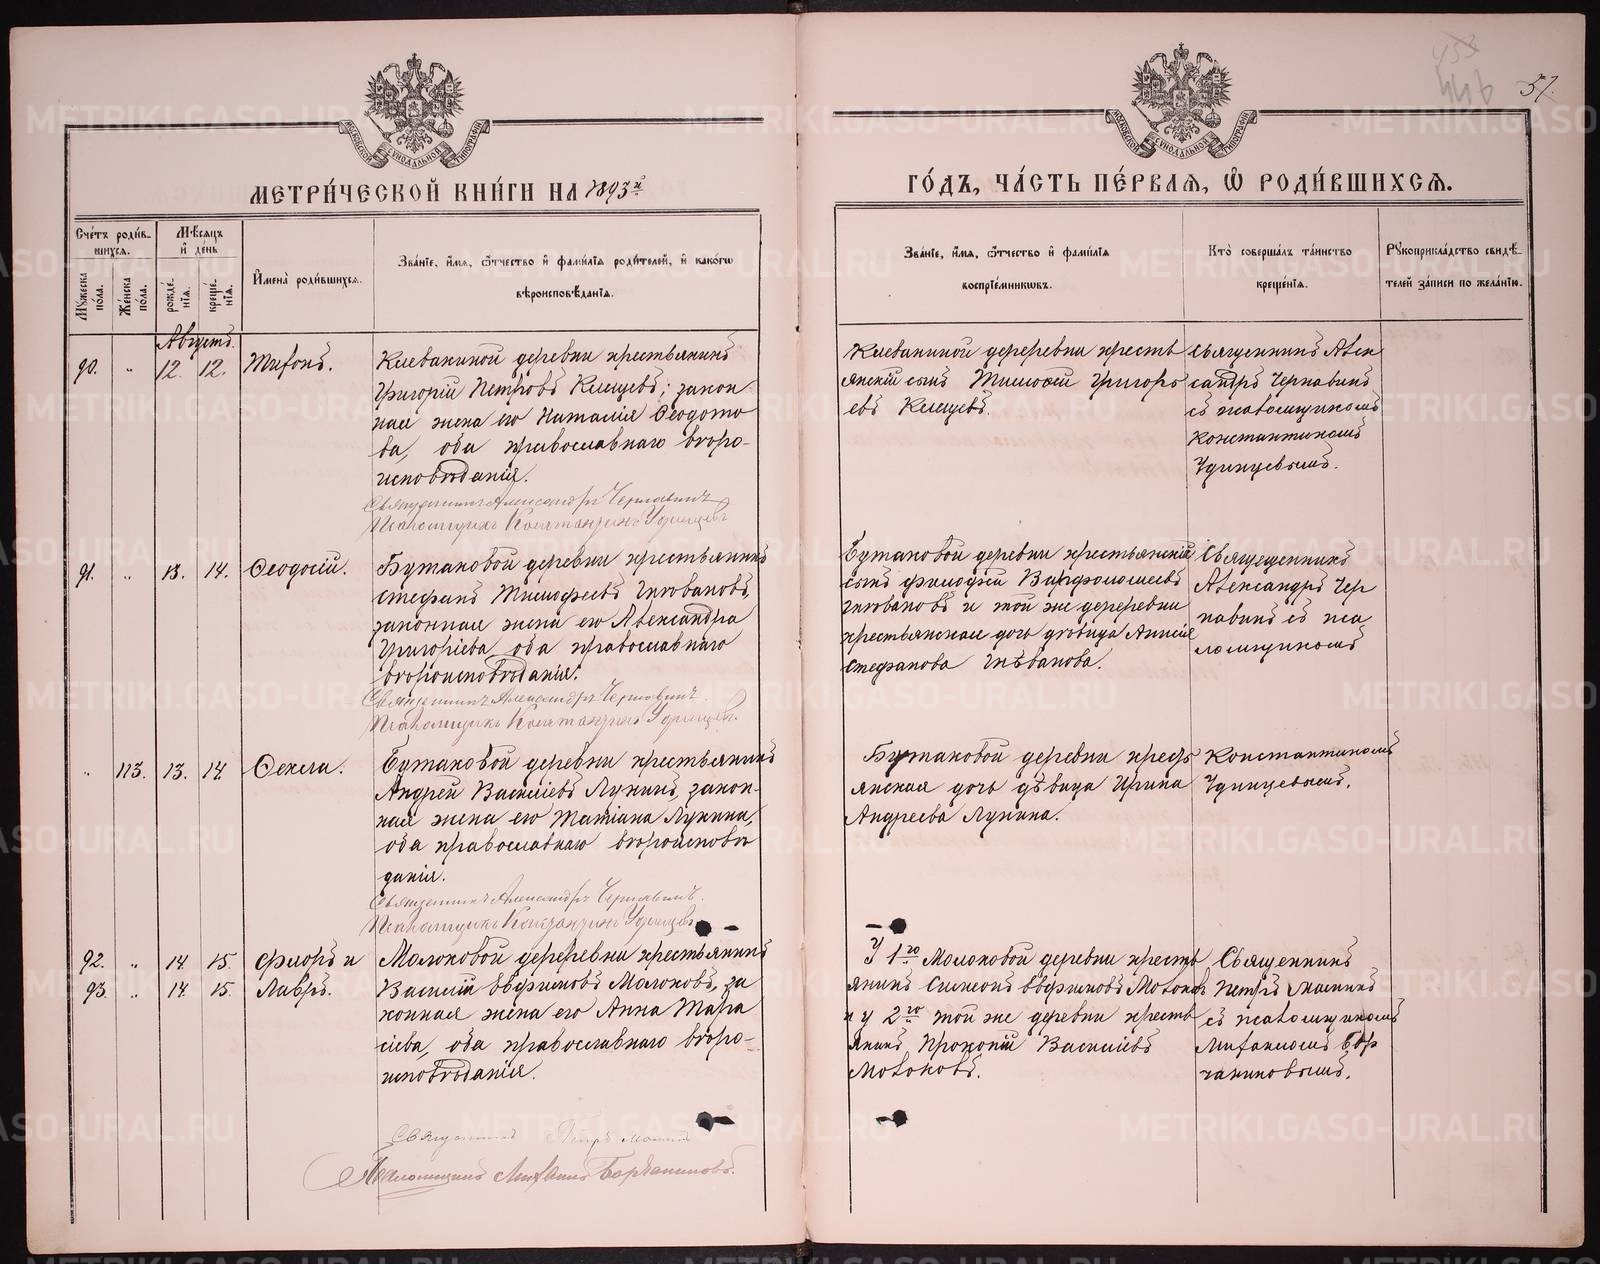 453
446
57.
МЕТРИ́ЧЕСКОЙ КНИ́ГИ НА 1893й
ГО́ДЪ, ЧА́СТЬ ПЕ́РВАЯ, Ѡ҆ РОДИ́ВШИХСЯ.
Сче́тъ роди́в-
шихся.
Мѣ́сяцъ
и҆ де́нь
Мꙋ́жеска
по́ла.
Же́нска
по́ла.
рожде́-
нїя.
креще́-
нїя.
И҆мена̀ роди́вшихся.
Зва́нїе, и҆́мя, ѻ҆́тчество и҆ фамѵ́лїя роди́телей, и҆ како́гѡ
вѣроисповѣ́данїя.
Зва́нїе, и҆́мя, ѻ҆́тчество и҆ фамѵ́лїя
воспрїе́мникѡвъ.
Кто̀ соверша́лъ та́инство
креще́нїя.
Рꙋкоприкла́дство свидѣ́-
телей за́писи по жела́нїю.
Августъ.
90. „ 12. 12. Тифонъ.
Клевакиной деревни крестьянинъ
Григорій Петровъ Клещевъ; закон
ная жена его Наталія Ѳеодото
ва, оба православнаго вѣро-
исповѣданія.
Священникъ Александръ Чернавинъ
Псаломщикъ Константинъ Удинцевъ
Клевакиной дереревни кресть
янскій сынъ Тимоѳей Григорь
евъ Клещевъ.
Священникъ Алек
сандръ Чернавинъ
съ псаломщикомъ
Константиномъ
Удинцевымъ.
91. „ 13. 14. Ѳеодосій.
Бутаковой деревни крестьянинъ
Стефанъ Тимофеевъ Гнѣвановъ,
законная жена его Александра
Григоріева, оба православнаго
вѣроисповѣданія.
Священникъ Александръ Чернавинъ.
Псаломщикъ Константинъ Удинцевъ.
Бутаковой деревни крестьянскій
сынъ Филофей Варфоломеевъ
Гнѣвановъ и той же дереревни
крестьянская дочь дѣвица Анисія
Стефанова Гнѣванова.
Священникъ
Александръ Чер
навинъ съ пса
ломщикомъ
„ 113. 13. 14. Ѳекла.
Бутаковой деревни крестьянинъ
Андрей Василіевъ Лунинъ, закон-
ная жена его Татіана Лунина,
оба православнаго вѣроисповѣ
данія.
Священникъ Александръ Чернавинъ.
Псаломщикъ Константинъ Удинцевъ
Бутаковой деревни кресть
янская дочь дѣвица Ирина
Андреева Лунина.
Константиномъ
Удинцевымъ.
92. „ 14. 15. Флоръ и
93. „ 14. 15. Лавръ.
Молоковой дереревни крестьянинъ
Василій Евфимовъ Молоковъ, за
конная жена его Анна Тара
сіева, оба православнаго вѣро-
исповѣданія.
Священникъ Петръ Мамин
Псаломщикъ Михаилъ Борчаниновъ.
У 1го Молоковой деревни кресть
янинъ Симеонъ Евфимовъ Молоковъ
и у 2го той же деревни кресть
янинъ Прокопій Василіевъ
Молоковъ.
Священникъ
Петръ Маминъ
съ псаломщикомъ
Михаиломъ Бор
чаниновымъ.
METRIKI.GASO-URAL.RU